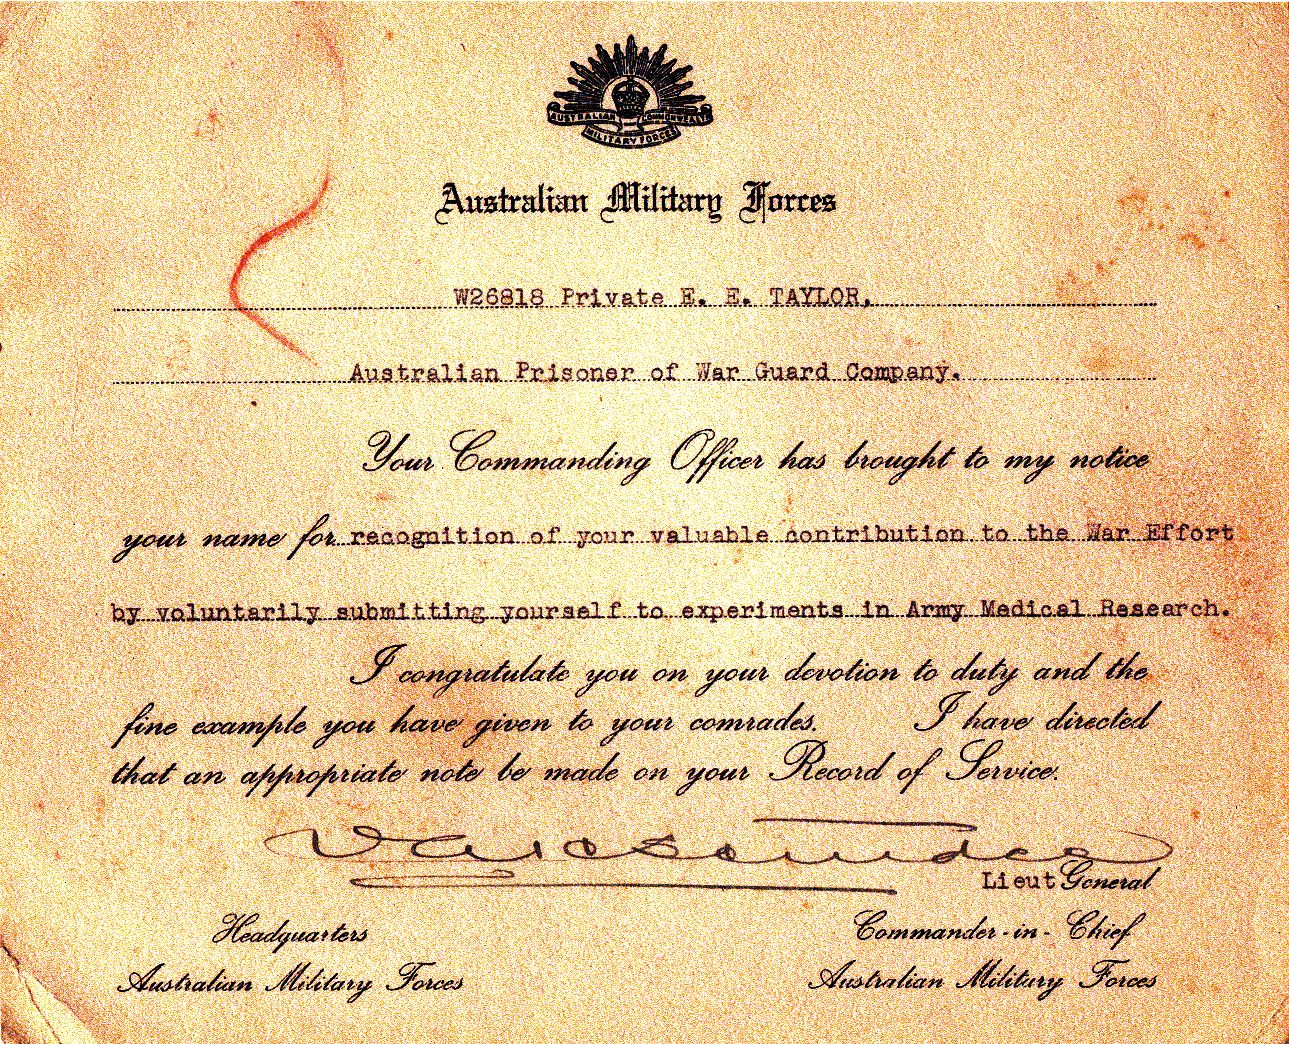 AUSTRALIAN COMMONWEALTH
MILITARY FORCES
Australian Military Forces
W26818 Private E. E. TAYLOR.
Australian Prisoner of War Guard Company.
Your Commanding Officer has brought to my notice
your name for recognition of your valuable contribution to the War Effort
by voluntarily submitting yourself to experiments in Army Medical Research.
I congratulate you on your devotion to duty and the
fine example you have given to your comrades. I have directed
that an appropriate note be made on your Record of Service.
Lieut General
Headquarters
Commander-in-Chief
Australian Military Forces
Australian Military Forces